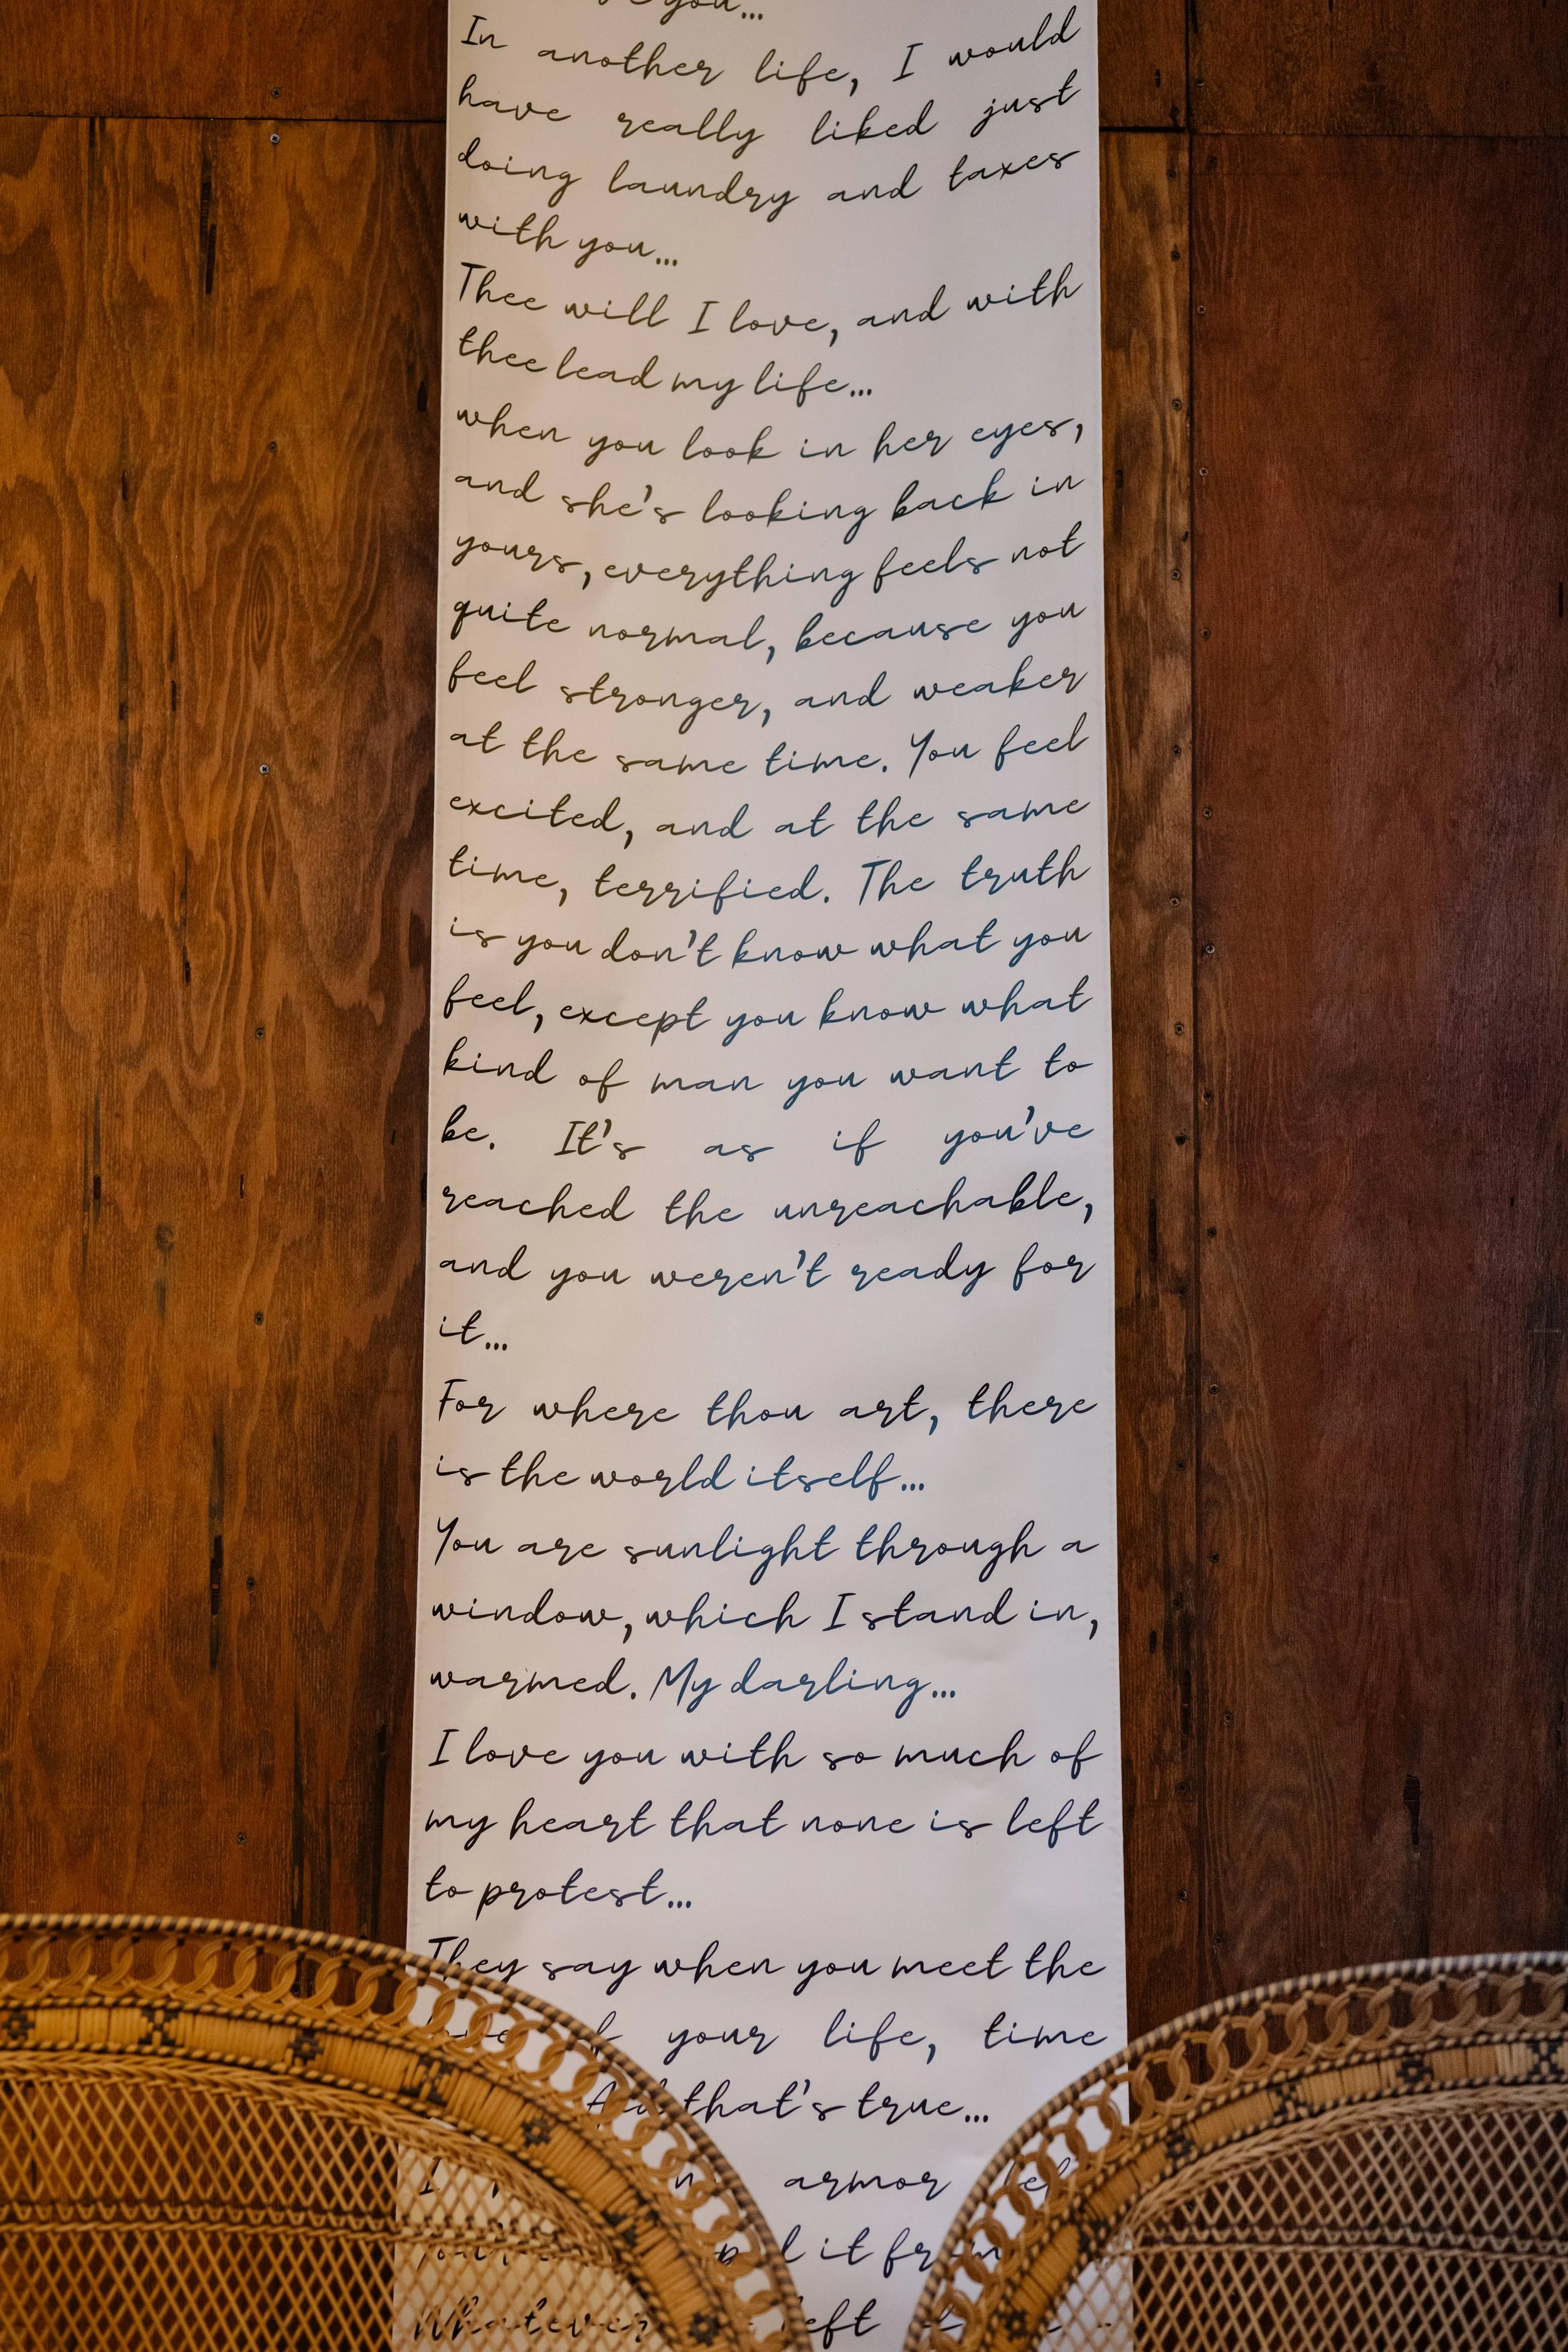 you...
In another life, I would
have really liked just
doing laundry and taxes
with you...
Thee will I love, and with
thee lead my life...
when you look in her eyes,
and she's looking back in
yours, everything feels not
quite normal, because you
feel stronger, and weaker
at the same time. You feel
excited, and at the same
time, terrified. The truth
is you don't know what you
feel, except you know what
kind of man you want to
be. It's as if you've
reached the unreachable,
and you weren't ready for
it...
For where thou art, there
is the world itself...
You are sunlight through a
window, which I stand in,
warmed. My darling...
I love you with so much of
my heart that none is left
to protest...
They say when you meet the
love of your life, time
And that's true...
I armor
it
Whatever left